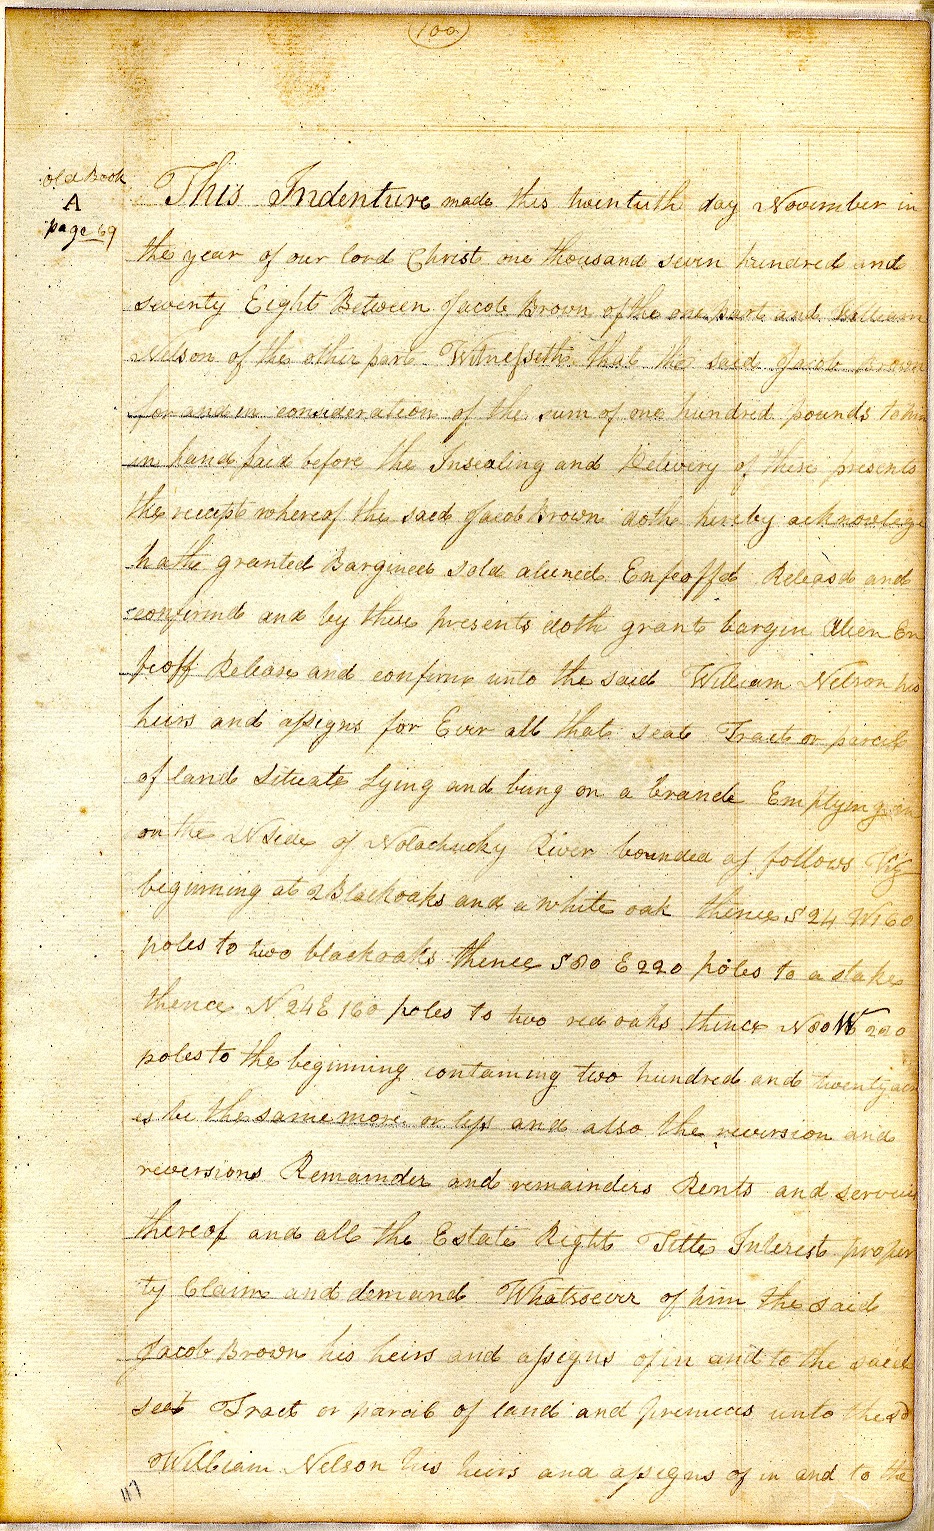 100
Old Book
A
page 69
This Indenture made this twentieth day November in
the year of our lord Christ one thousand seven hundred and
seventy Eight Between Jacob Brown of the one part and William
Nelson of the other part Witnesseth that the said Jacob Brown
for and in consideration of the sum of one hundred pounds to him
in hand paid before the Insealing and Delivery of these presents
the receipt whereof the said Jacob Brown doth hereby acknowlege
hath granted Bargined sold aliened Enfeoffd Releasd and
confirmd and by these presents doth grant bargin Alien En
feoff Release and confirm unto the said William Nelson his
heirs and assigns for Ever all that seat Tract or parcel
of land Situate Lying and being on a branch Emptying in
on the N side of Nolachucky River bounded as follows Viz
beginning at 2 Blackoaks and a white oak thence S 24 W 160
poles to two blackoaks thence S 80 E 220 poles to a stake
thence N 24 E 160 poles to two red oaks thence N 80 W 220
poles to the beginning containing two hundred and twenty acr
es be the same more or less and also the reversion and
reversions Remainder and remainders Rents and services
thereof and all the Estate Right Title Interest proper
ty Claim and demand Whatsoever of him the said
Jacob Brown his heirs and assigns of in and to the said
seat Tract or parcel of land and premices unto the sd
William Nelson his heirs and assigns of in and to the
117